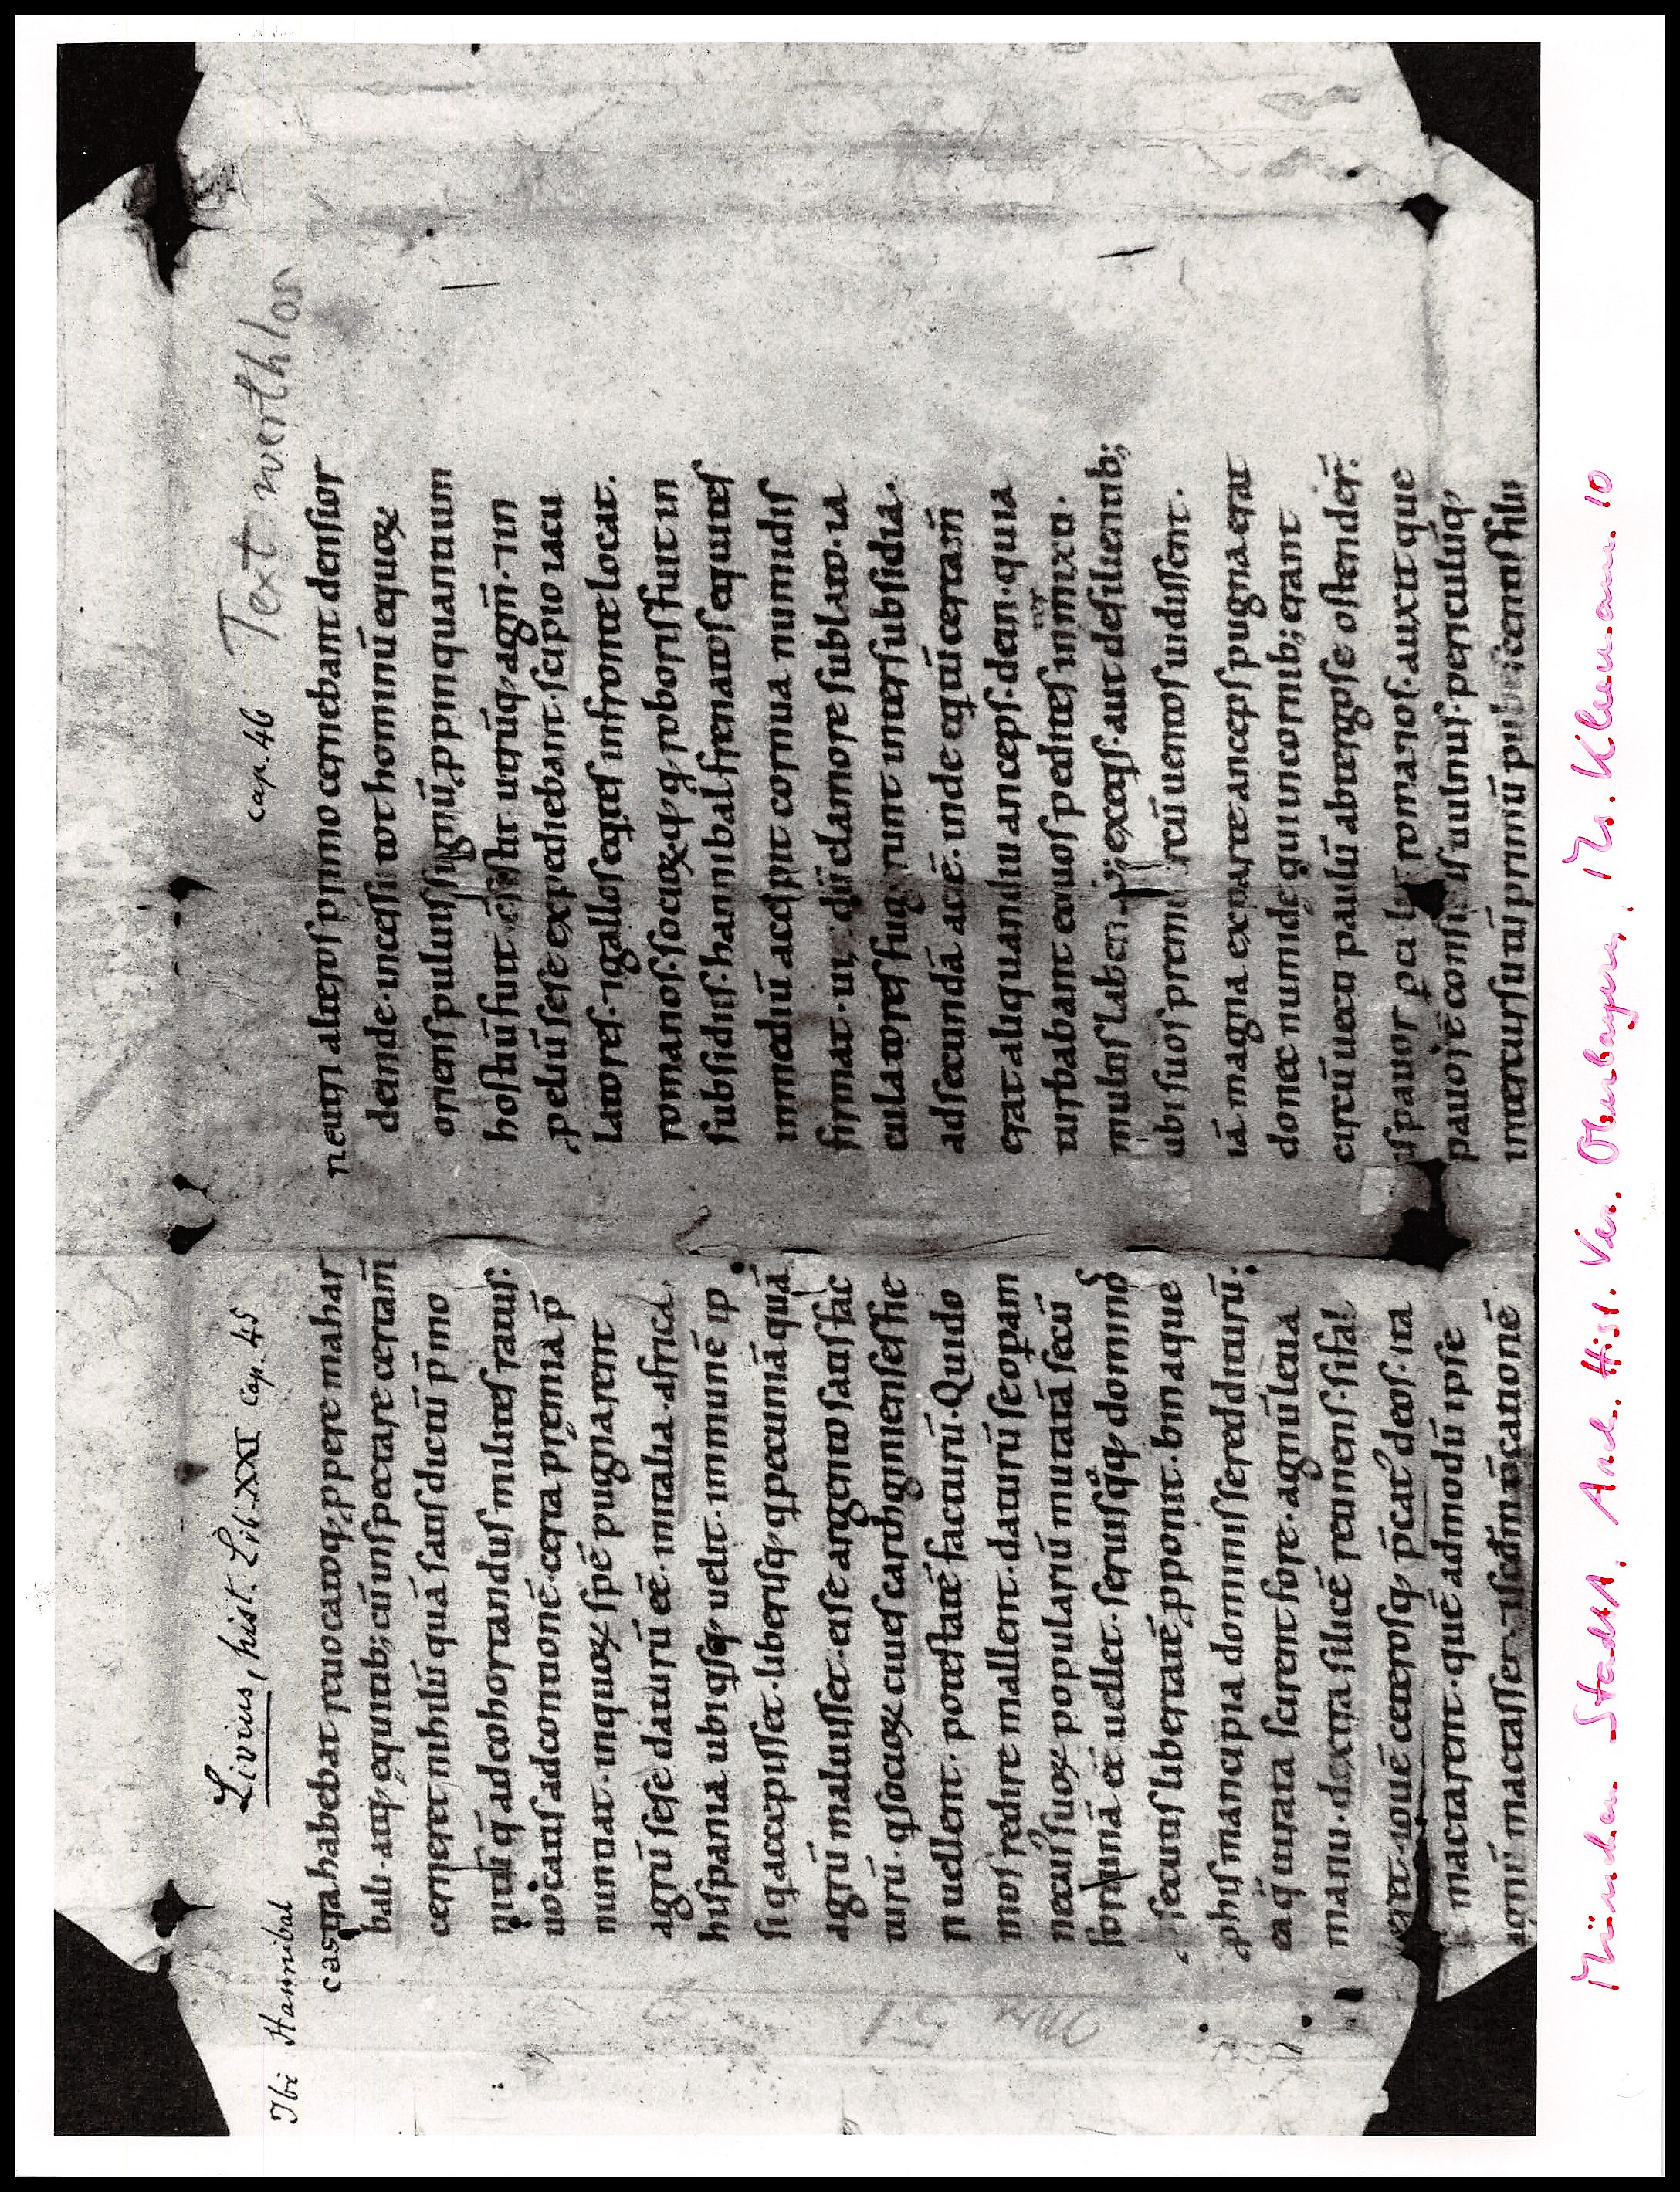 Ibi Hannibal
Livius, hist. Lib. XXI cap. 45
castra habebat reuocatoq; ꝓpere mahar
bali atq; equitib; cū inspectare certam̄
cerneret nihilū quā satis dictū p̄mo
nitū q̄ ad cohortandus milites ratus:
uocatis ad contionē certa pręmia p̄
nuntiat. inquoꝝ spē pugnarent
agrū sese daturū eē. initalia. africa
hispania ubi qsq; uelit. immunē ip
si q accepisset. liberisq; q pecuniā quā
agrū maluisset. ense argento satisfac
turū. q socioꝝ ciues carthaginiensesfie
ri uellent. potestatē facturū. Qui do
mos redire mallent. daturū se opam
necuiꝰ suoꝝ popularū mutatā secū
fortunā eē uellet. seruisq̊q; dominos
secutis libertatē ꝓponit. binaque
ꝓ his mancipia dominis se redditurū.
eaq̄ ut rata scirent fore. agnū leua
manu. dextra silicē retinens. si fal
eret. iouē ceterosq; p̄catꝰ deos. ita
mactarent. quē admodū ipse
agnū mactasset. &scdm̄ p̄cationē
cap. 46
Text werthlos
neutri alteros primo cernebant densior
deinde. incessu tot hominū equoꝝ
oriens puluis signū ꝓpinquantium
hostiū fuit cōstitit utrūq; agm̄. &in
ꝓeliū sese expediebant. scipio iacu
latores. &gallos eqtes infronte locat.
romanos. socioꝝ q; q roboris fuit in
subsidiis. hannibal frenatos equites
inmediū accipit cornua numidis
firmat. uix dū clamore sublato. ia
culatores fugerunt inter subsidia.
ad secundā aciē. inde equitū certam̄
erat aliquandiu anceps. dein. quia
turbabant equos pedites. intermixti.
multis labentib; ex eqis. aut desilientib;
ubi suos premi circūuentos uidissent.
iā magna ex parte anceps pugna erat
donec numidę qui incornib; erant
circū uecti paulū abtergo se ostender̄.
is pauor ꝑculit romanos. auxit que
pauorē consulis uulnus. periculūq;
intercursu tū primū pubescentis filii
München Stadta. Arch. Hist. Ver. Oberbayern, Ms. Klemann 10